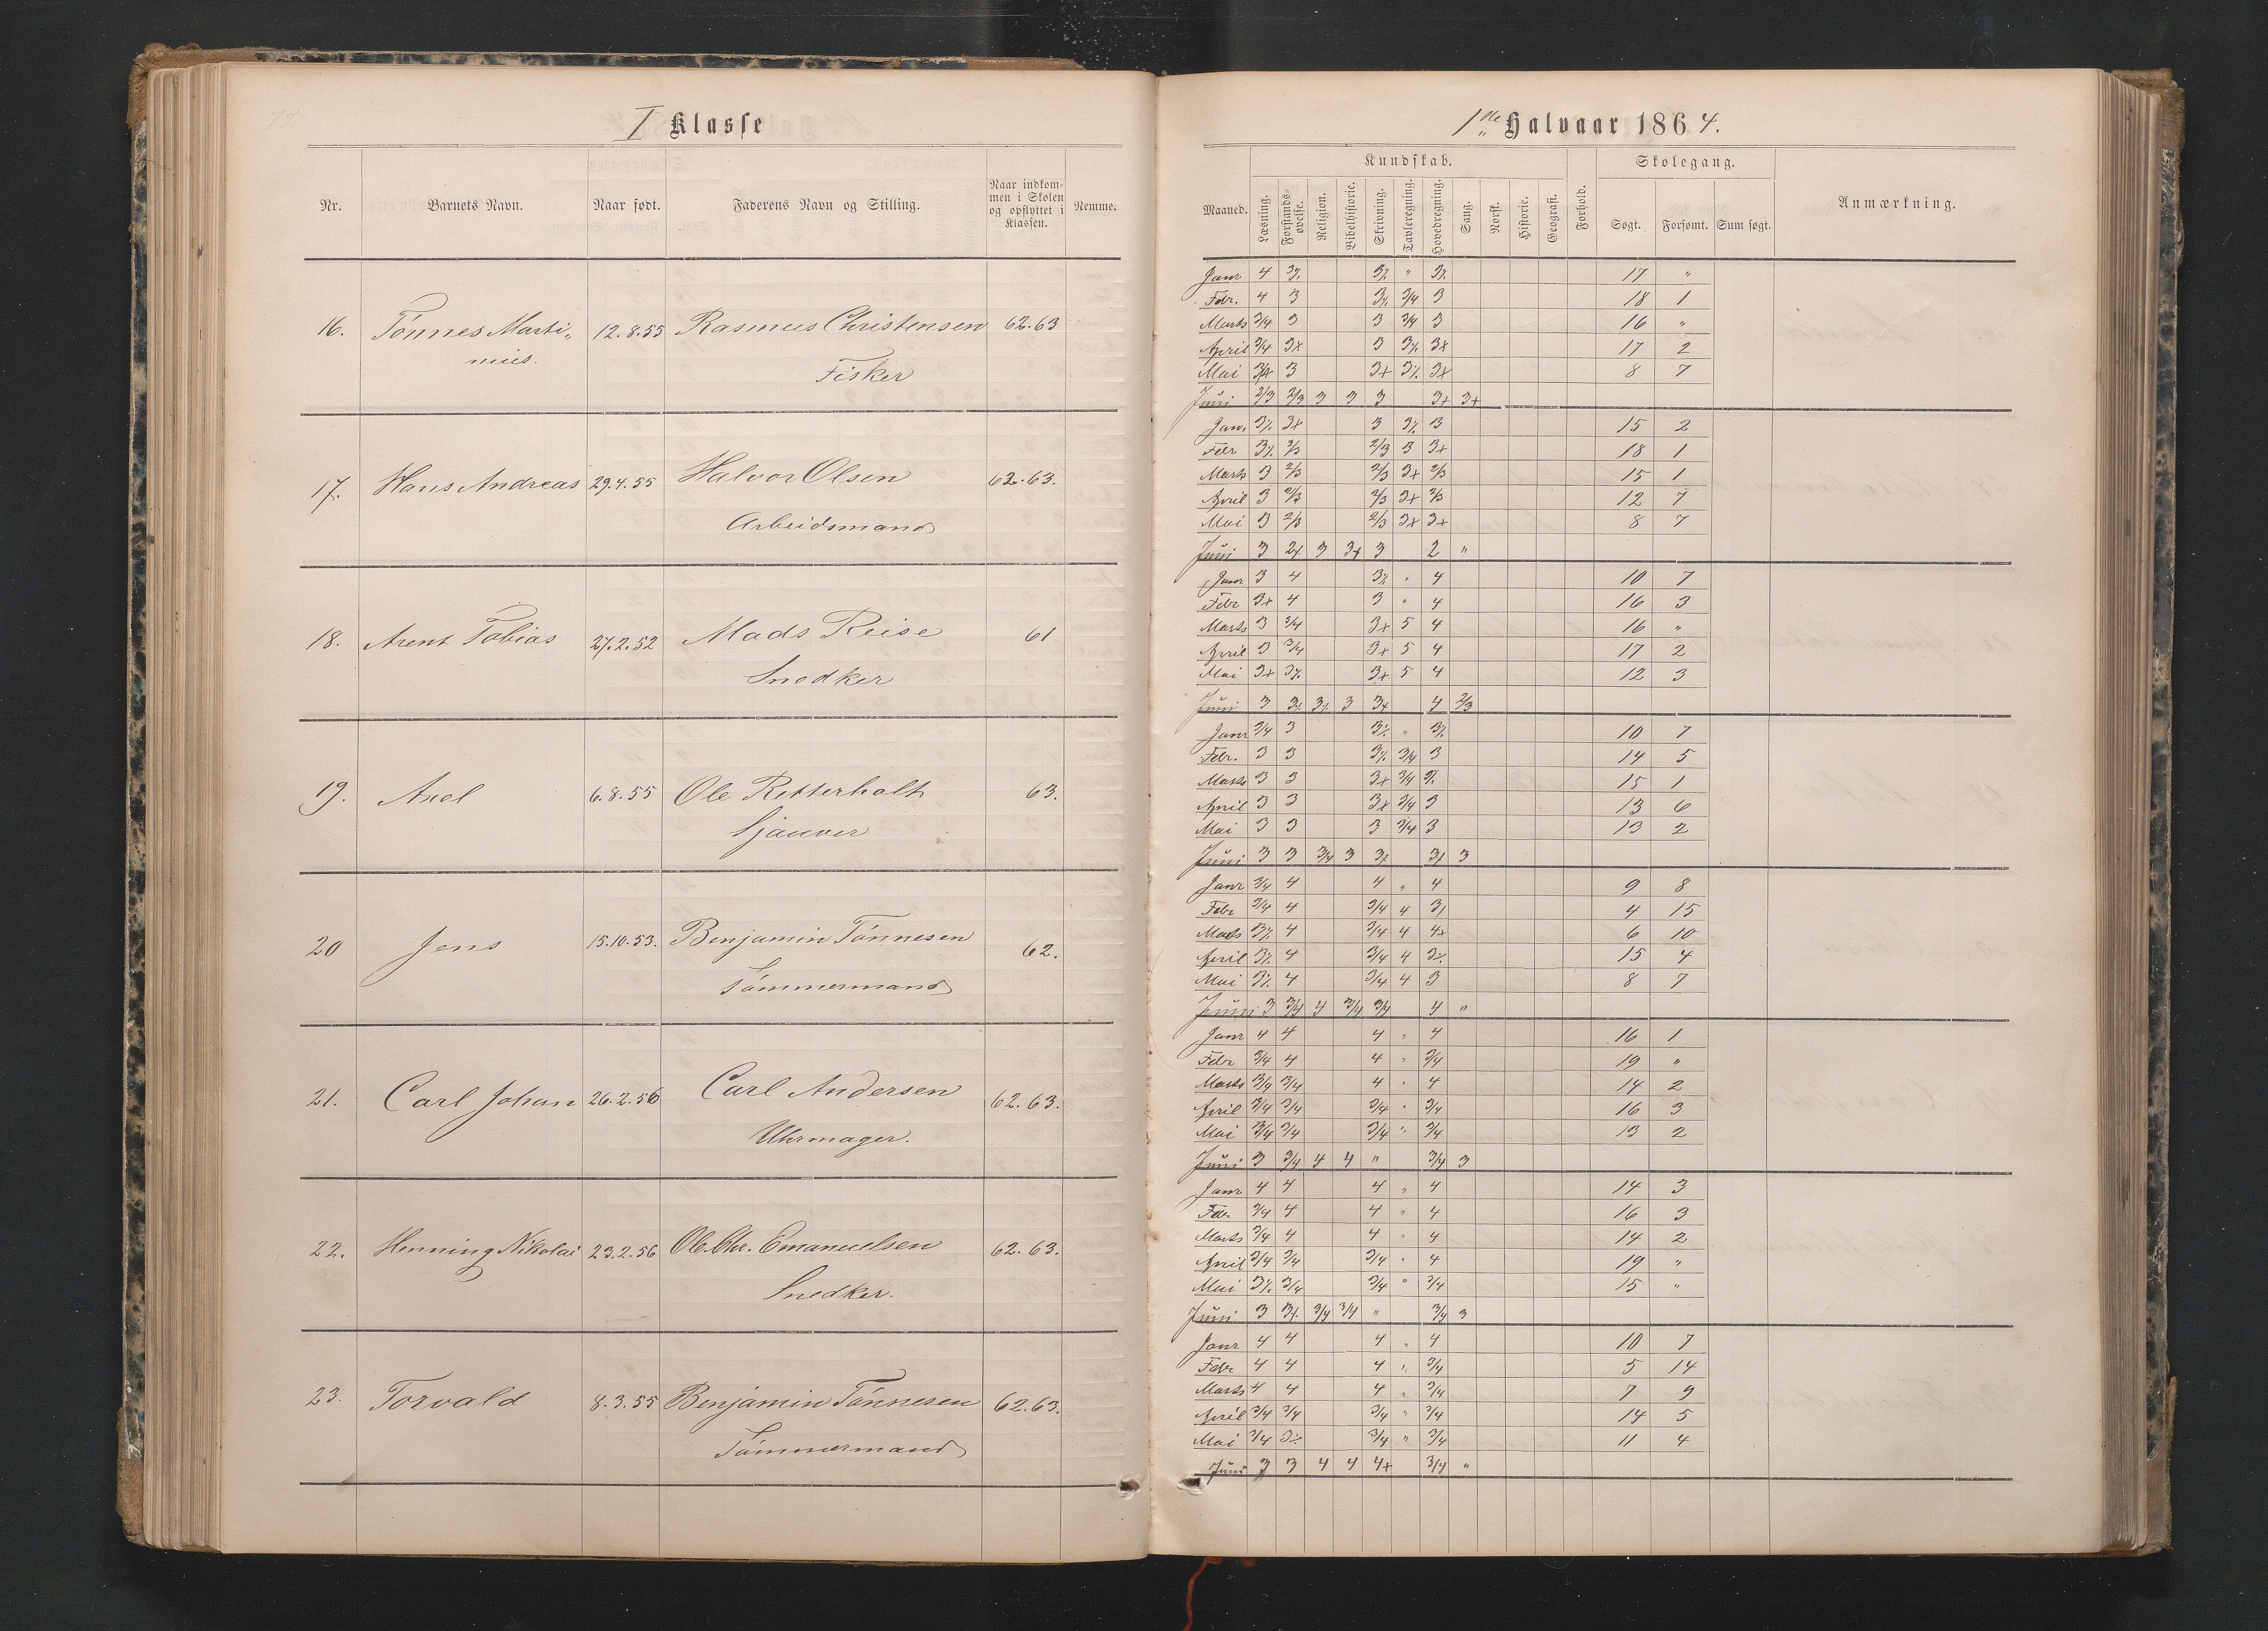 I Klasse
Nr. Barnets Navn. Naar født. Faderens Navn og Stilling. Naar indkommen i Skolen og opflyttet i Klassen. Nemme.
16. Tönnes Marti„ 12.8.55 Rasmus Christensen 62.63
nius. Fisker
17. Hans Andreas 29.4.55 Halvor Olsen 62.63.
Arbeidsmand
18. Arent Tobias 27.2.52 Mads Reise 61
Snedker
19. Axel 6.8.55 Ole Retterholt 63.
Sjauver
20 Jens 15.10.53. Benjamin Tönnesen 62.
Tömmermand
21. Carl Johan 26.2.56 Carl Andersen 62.63.
Uhrmager.
22. Henning Nikolai 23.2.56 Ole Chr. Emanuelsen 62.63.
Snedker.
23. Torvald 8.3.55 Benjamin Tönnesen 62.63.
Tömmermand
1ste Halvaar 1864.
Kundskab. Skolegang.
Maaned. Læsning. Forstandsøvelse. Religion. Bibelhistorie. Skrivning. Tavleregning. Hovedregning. Sang. Norsk. Historie. Geografi. Forhold. Søgt. Forsømt. Sum søgt. Anmærkning.
Janr 4 3⁒ 3⁒ " 3⁒ 17 "
Febr. 4 3 3⁒ 3/4 3 18 1
Marts 3/4 3 3 3/4 3 16 "
April 3/4 3x 3 3⁒ 3x 17 2
Mai 3/4 3 3+ 3⁒ 3x 8 7
Juni 2/3 2/3 3 3 3 3+ 3+
Janr 3⁒ 3x 3 3⁒ 3 15 2
Febr 3⁒ 2/3 2/3 3 3+ 18 1
Marts 3 2/3 2/3 3x 2/3 15 1
April 3 2/3 2/3 3x 2/3 12 7
Mai 3 2/3 2/3 3x 3+ 8 7
Juni 3 2x 3 3x 3 2 "
Janr 3 4 3⁒ " 4 10 7
Febr 3+ 4 3 " 4 16 3
Marts 3 3/4 3x 5 4 16 "
April 3 3/4 3x 5 4 17 2
Mai 3+ 3⁒ 3x 5 4 12 3
Juni 3 3⁒ 3⁒ 3 3x 4 2/3
Janr 3/4 3 3⁒ " 3⁒ 10 7
Febr. 3 3 3⁒ 3/4 3 14 5
Marts 3 3 3x 3/4 3⁒ 15 1
April 3 3 3x 3/4 3 13 6
Mai 3 3 3 3/4 3 13 2
Juni 3 3 3/4 3 3⁒ 3⁒ 3
Janr 3/4 4 4 " 4 9 8
Febr 3/4 4 3/4 4 3⁒ 4 15
Marts 3⁒ 4 3/4 4 4x 6 10
April 3⁒ 4 3/4 4 3⁒ 15 4
Mai 3⁒ 4 3/4 4 3 8 7
Juni 3 3/4 4 3/4 3/4 4 "
Janr 4 4 4 " 4 16 1
Febr 3/4 4 4 " 3/4 19 "
Marts 3/4 3/4 4 " 4 14 2
April 3/4 3/4 3/4 " 3/4 16 3
Mai 3/4 3/4 3/4 " 3/4 13 2
Juni 3 3/4 4 4 " 3/4 3
Janr 4 4 4 " 4 14 3
Febr 3/4 4 4 " 4 16 3
Marts 3/4 4 4 " 4 14 2
April 3/4 3/4 3/4 " 4 19 "
Mai 3⁒ 3/4 3/4 " 3/4 15 "
Juni 3 3⁒ 3/4 3/4 " 3/4 3
Janr 4 4 4 " 4 10 7
Febr 4 4 4 " 3/4 5 14
Marts 4 4 4 " 3/4 7 9
April 3/4 3/4 3/4 " 3/4 14 5
Mai 3/4 3⁒ 3/4 " 3/4 11 4
Juni 3 3 4 4 4+ 3/4 "